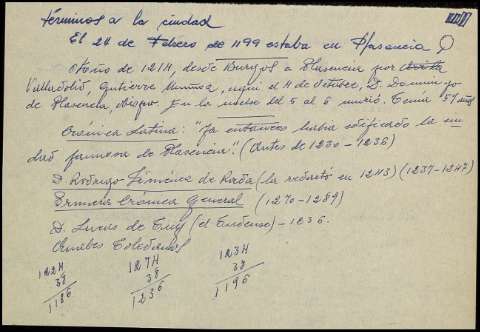 términos a la ciudad
El 24 de Febrero de 1199 estaba en Plasencia
Otoño de 1214, desde Burgos a Plasencia por
Valladolid, Gutierre Muñoz, aquí el 4 de Octubre, D. Domingo
de Plasencia, obispo. En la noche del 5 al 6 murió. Tenía 57 años
Crónica Latina: "Ya entonces había edificado la ciu-
dad famosa de Plasencia". (Antes de 1230-1236)
D. Rodrigo Jiménez de Rada (la redactó en 1243) (1237-1247)
Primera Crónica General (1270-1289)
D. Lucas de Tuy (el Tudense) - 1236.
Anales Toledanos
1224 1274 1234
38 38 38
1186 1236 1196